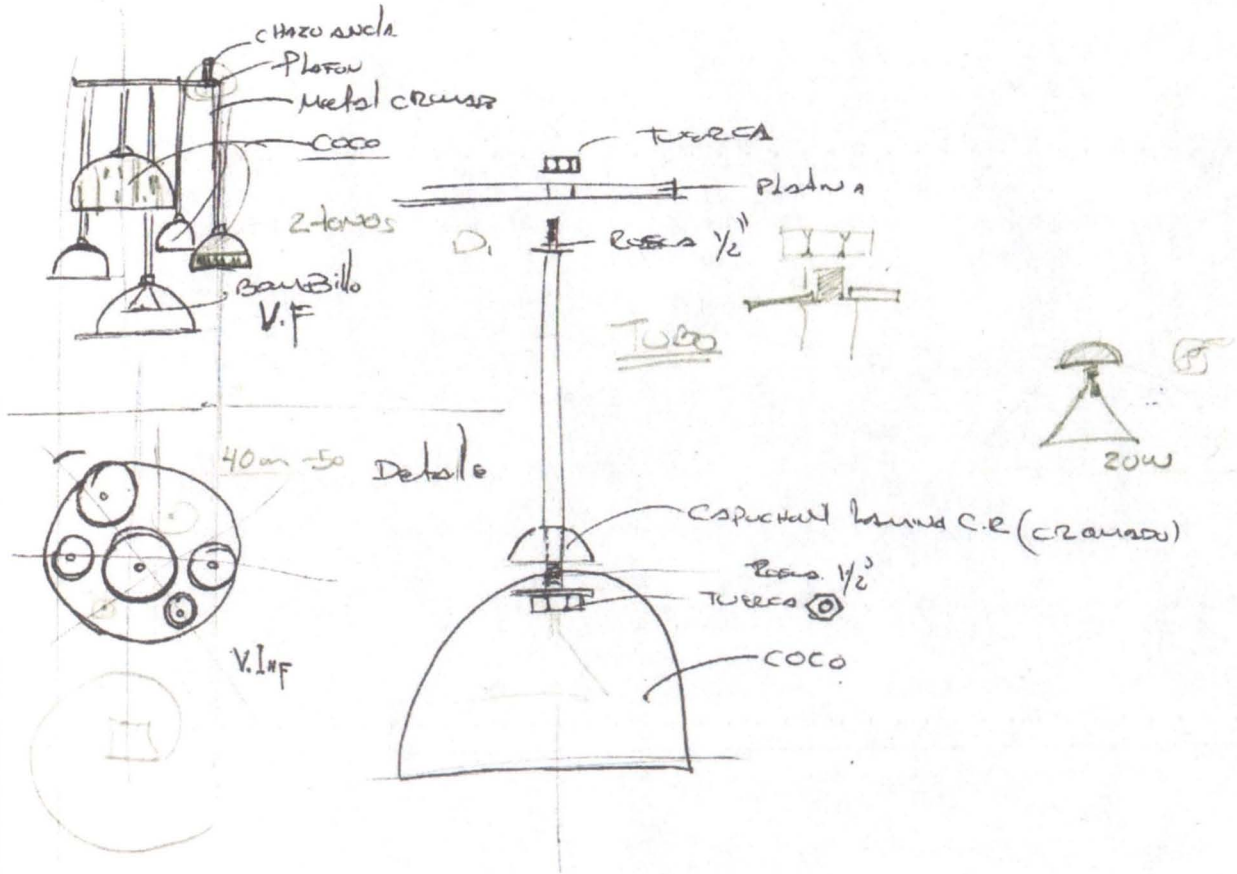 CHAZO ANCLA
PLAFON
Metal CROMADO
COCO
2-tonos
BOMBillo
V.F
TUERCA
PLATINA
D.
ROSCA 1/2"
TUBO
20W
40cm-50
Detalle
CAPUCHON LAMINA C.R (CROMADO)
ROSCA 1/2"
TUERCA
COCO
V.Inf